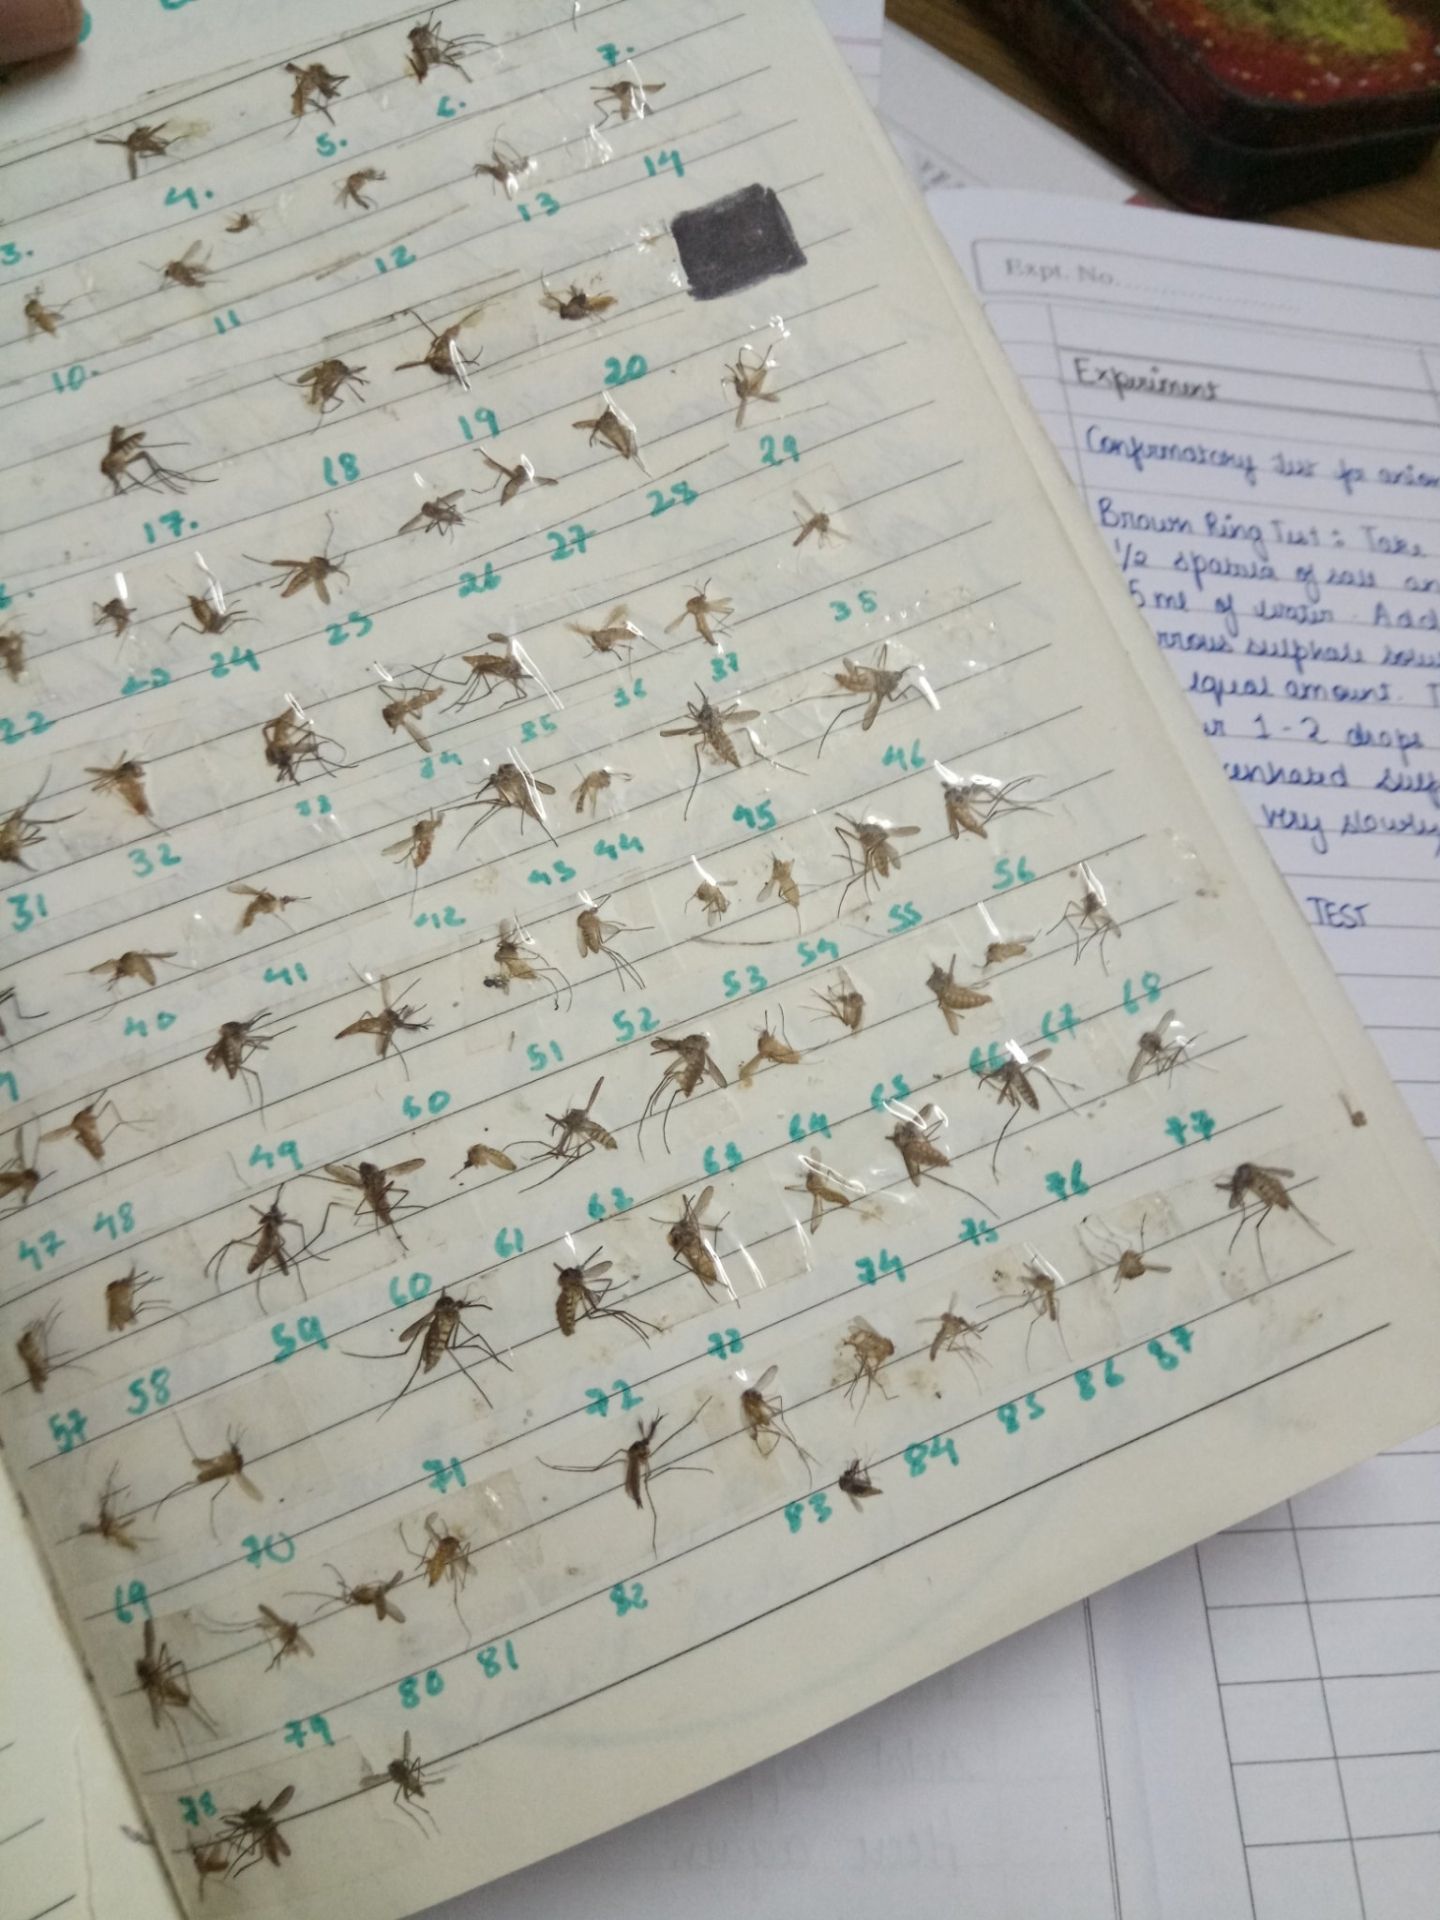 7.
6.
5.
4.
3.
14
13
12
11
10.
20
19
18
17.
29
28
27
26
25
24
23
22
38
37
36
35
34
33
32
31
46
45
44
43
42
41
40
56
55
54
53
52
51
50
49
48
47
68
67
66
65
64
63
62
61
60
59
58
57
77
76
75
74
73
72
71
70
69
87
86
85
84
83
82
81
80
79
78
Expt. No.
Experiment
Confirmatory test for anion
Brown Ring Test: Take
1/2 spatula of salt an
5 ml of water. Add
rrous sulphate solu
equal amount. T
ur 1-2 drops
very slowly
TEST